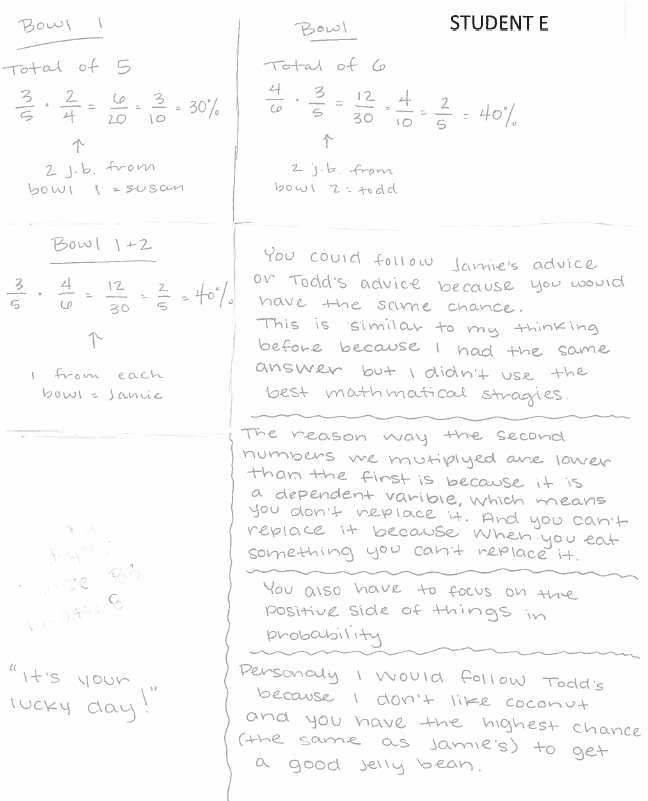 STUDENT E
Bowl 1
Total of 5
3/5 · 2/4 = 6/20 = 3/10 = 30%
↑
2 j.b. from
bowl 1 = susan
Bowl
Total of 6
4/6 · 3/5 = 12/30 = 4/10 = 2/5 = 40%
↑
2 j.b. from
bowl 2 = todd
Bowl 1+2
3/5 · 4/6 = 12/30 = 2/5 = 40%
↑
1 from each
bowl = Jamie
You could follow Jamie's advice
or Todd's advice because you would
have the same chance.
This is similar to my thinking
before because I had the same
answer but I didn't use the
best mathmatical stragies.
The reason way the second
numbers we mutiplyed are lower
than the first is because it is
a dependent varible, which means
you don't replace it. And you can't
replace it because when you eat
something you can't replace it.
You also have to focus on the
positive side of things in
probability
Personaly I would follow Todd's
because I don't like coconut
and you have the highest chance
(the same as Jamie's) to get
a good jelly bean.
"It's your
lucky day!"